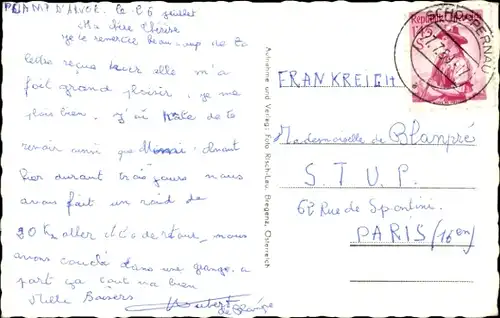 CAMP D'AVOZ. Le 26 juillet
Ma chère Thérèse
je te remercie beaucoup de ta
lettre reçue hier elle m'a
fait grand plaisir, je me
plais bien. J'ai hâte de te
revoir ainsi que Mimi. Avant
hier durant trois jours nous
avons fait un raid de
20 Km aller de retour, nous
avons couché dans une grange. a
part ça tout va bien
Mille Baisers
Houbert
de Blanpré
Aufnahme und Verlag: Foto Risch-Lau, Bregenz, Österreich
Republik
SCHOPPERNAU
FRANKREICH
Mademoiselle de Blanpré
S.T.U.P.
62 Rue de Spontini.
PARIS (16en)